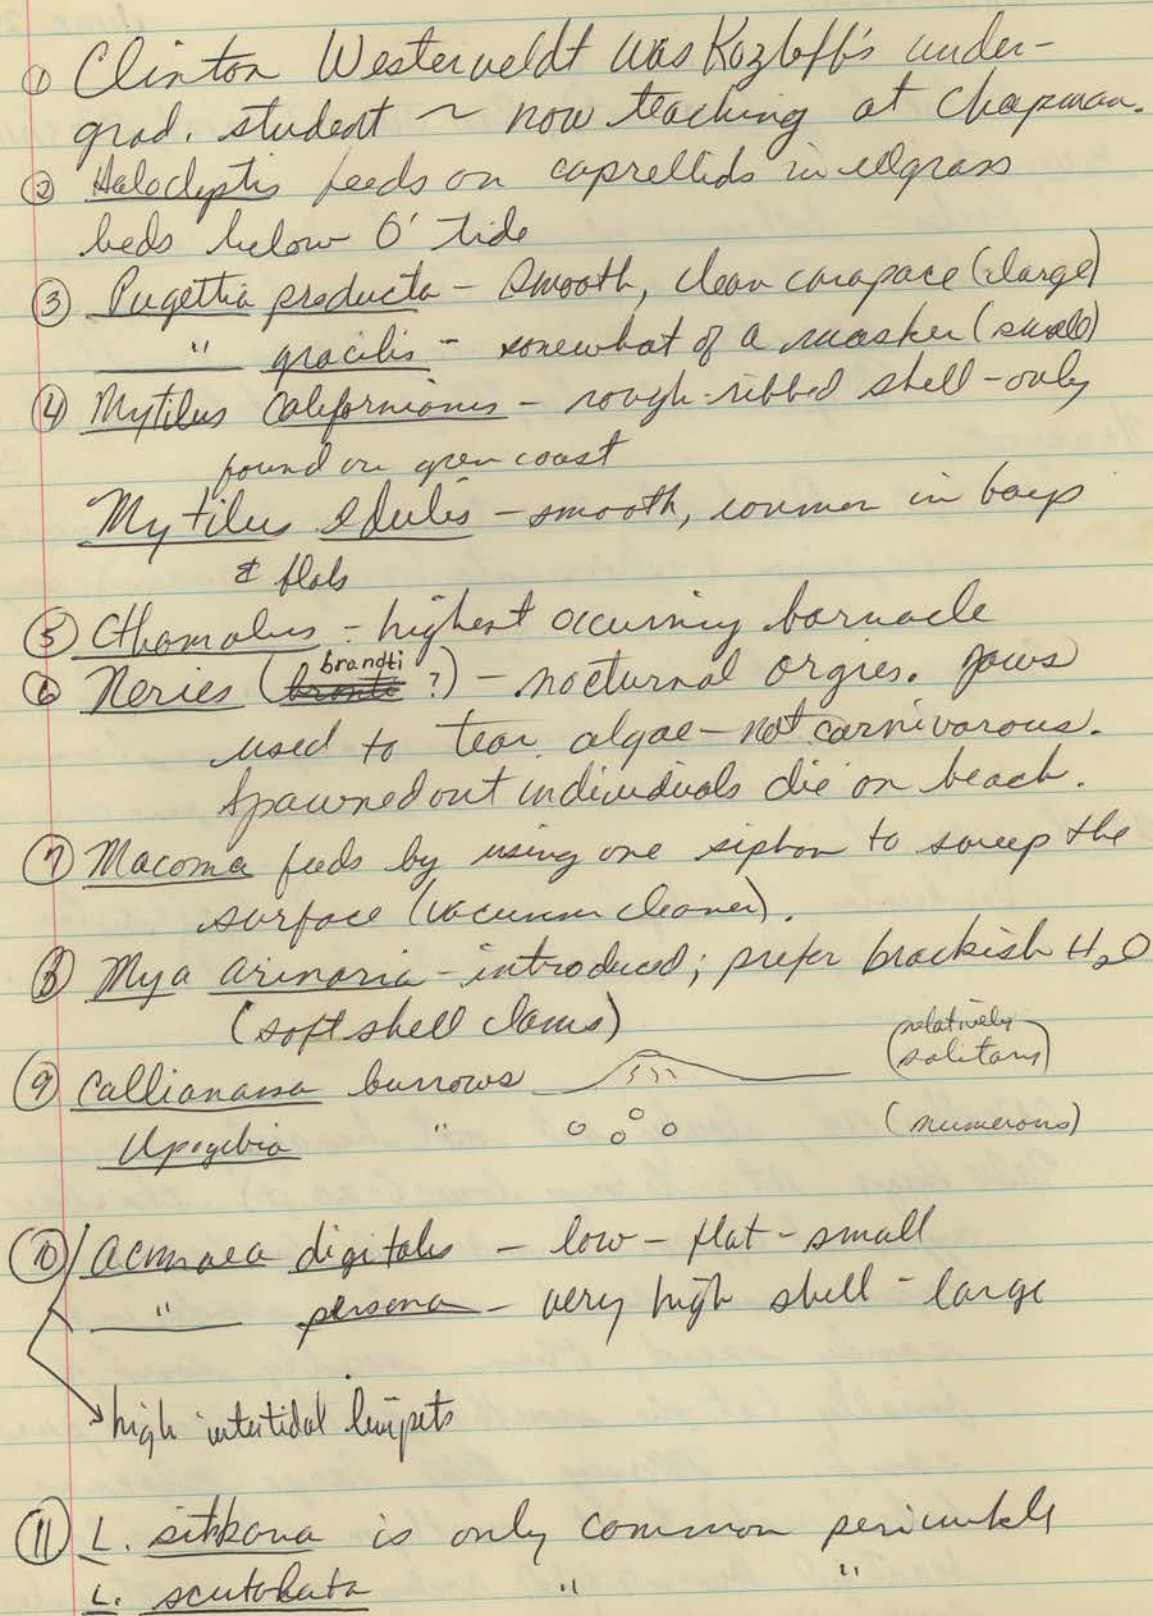 ① Clinton Westerveldt was Kozloff's under-
grad. student ~ now teaching at Chapman.
② Haloclyptis feeds on caprellids in eelgrass
beds below 0' tide
③ Pugettia producta - smooth, clean carapace (large)
" gracilis - somewhat of a masker (small)
④ Mytilus Californianus - rough-ribbed shell - only
found on open coast
Mytilus edulis - smooth, common in bays
& flats
⑤ Cthamalus - highest occurring barnacle
brandti
⑥ Neries ( ?) - nocturnal orgies. Jaws
used to tear algae - not carnivorous.
Spawned out individuals die on beach.
⑦ Macoma feeds by using one siphon to sweep the
surface (vacuum cleaner).
⑧ Mya arinaria - introduced; prefer brackish H₂O
(soft shell clams)
(relatively
⑨ Callianassa burrows solitary)
Upogebia " (numerous)
⑩ Acmaea digitalis - low - flat - small
" persona - very high shell - large
high intertidal limpets
⑪ L. sitkana is only common periwinkle
L. scutulata " "